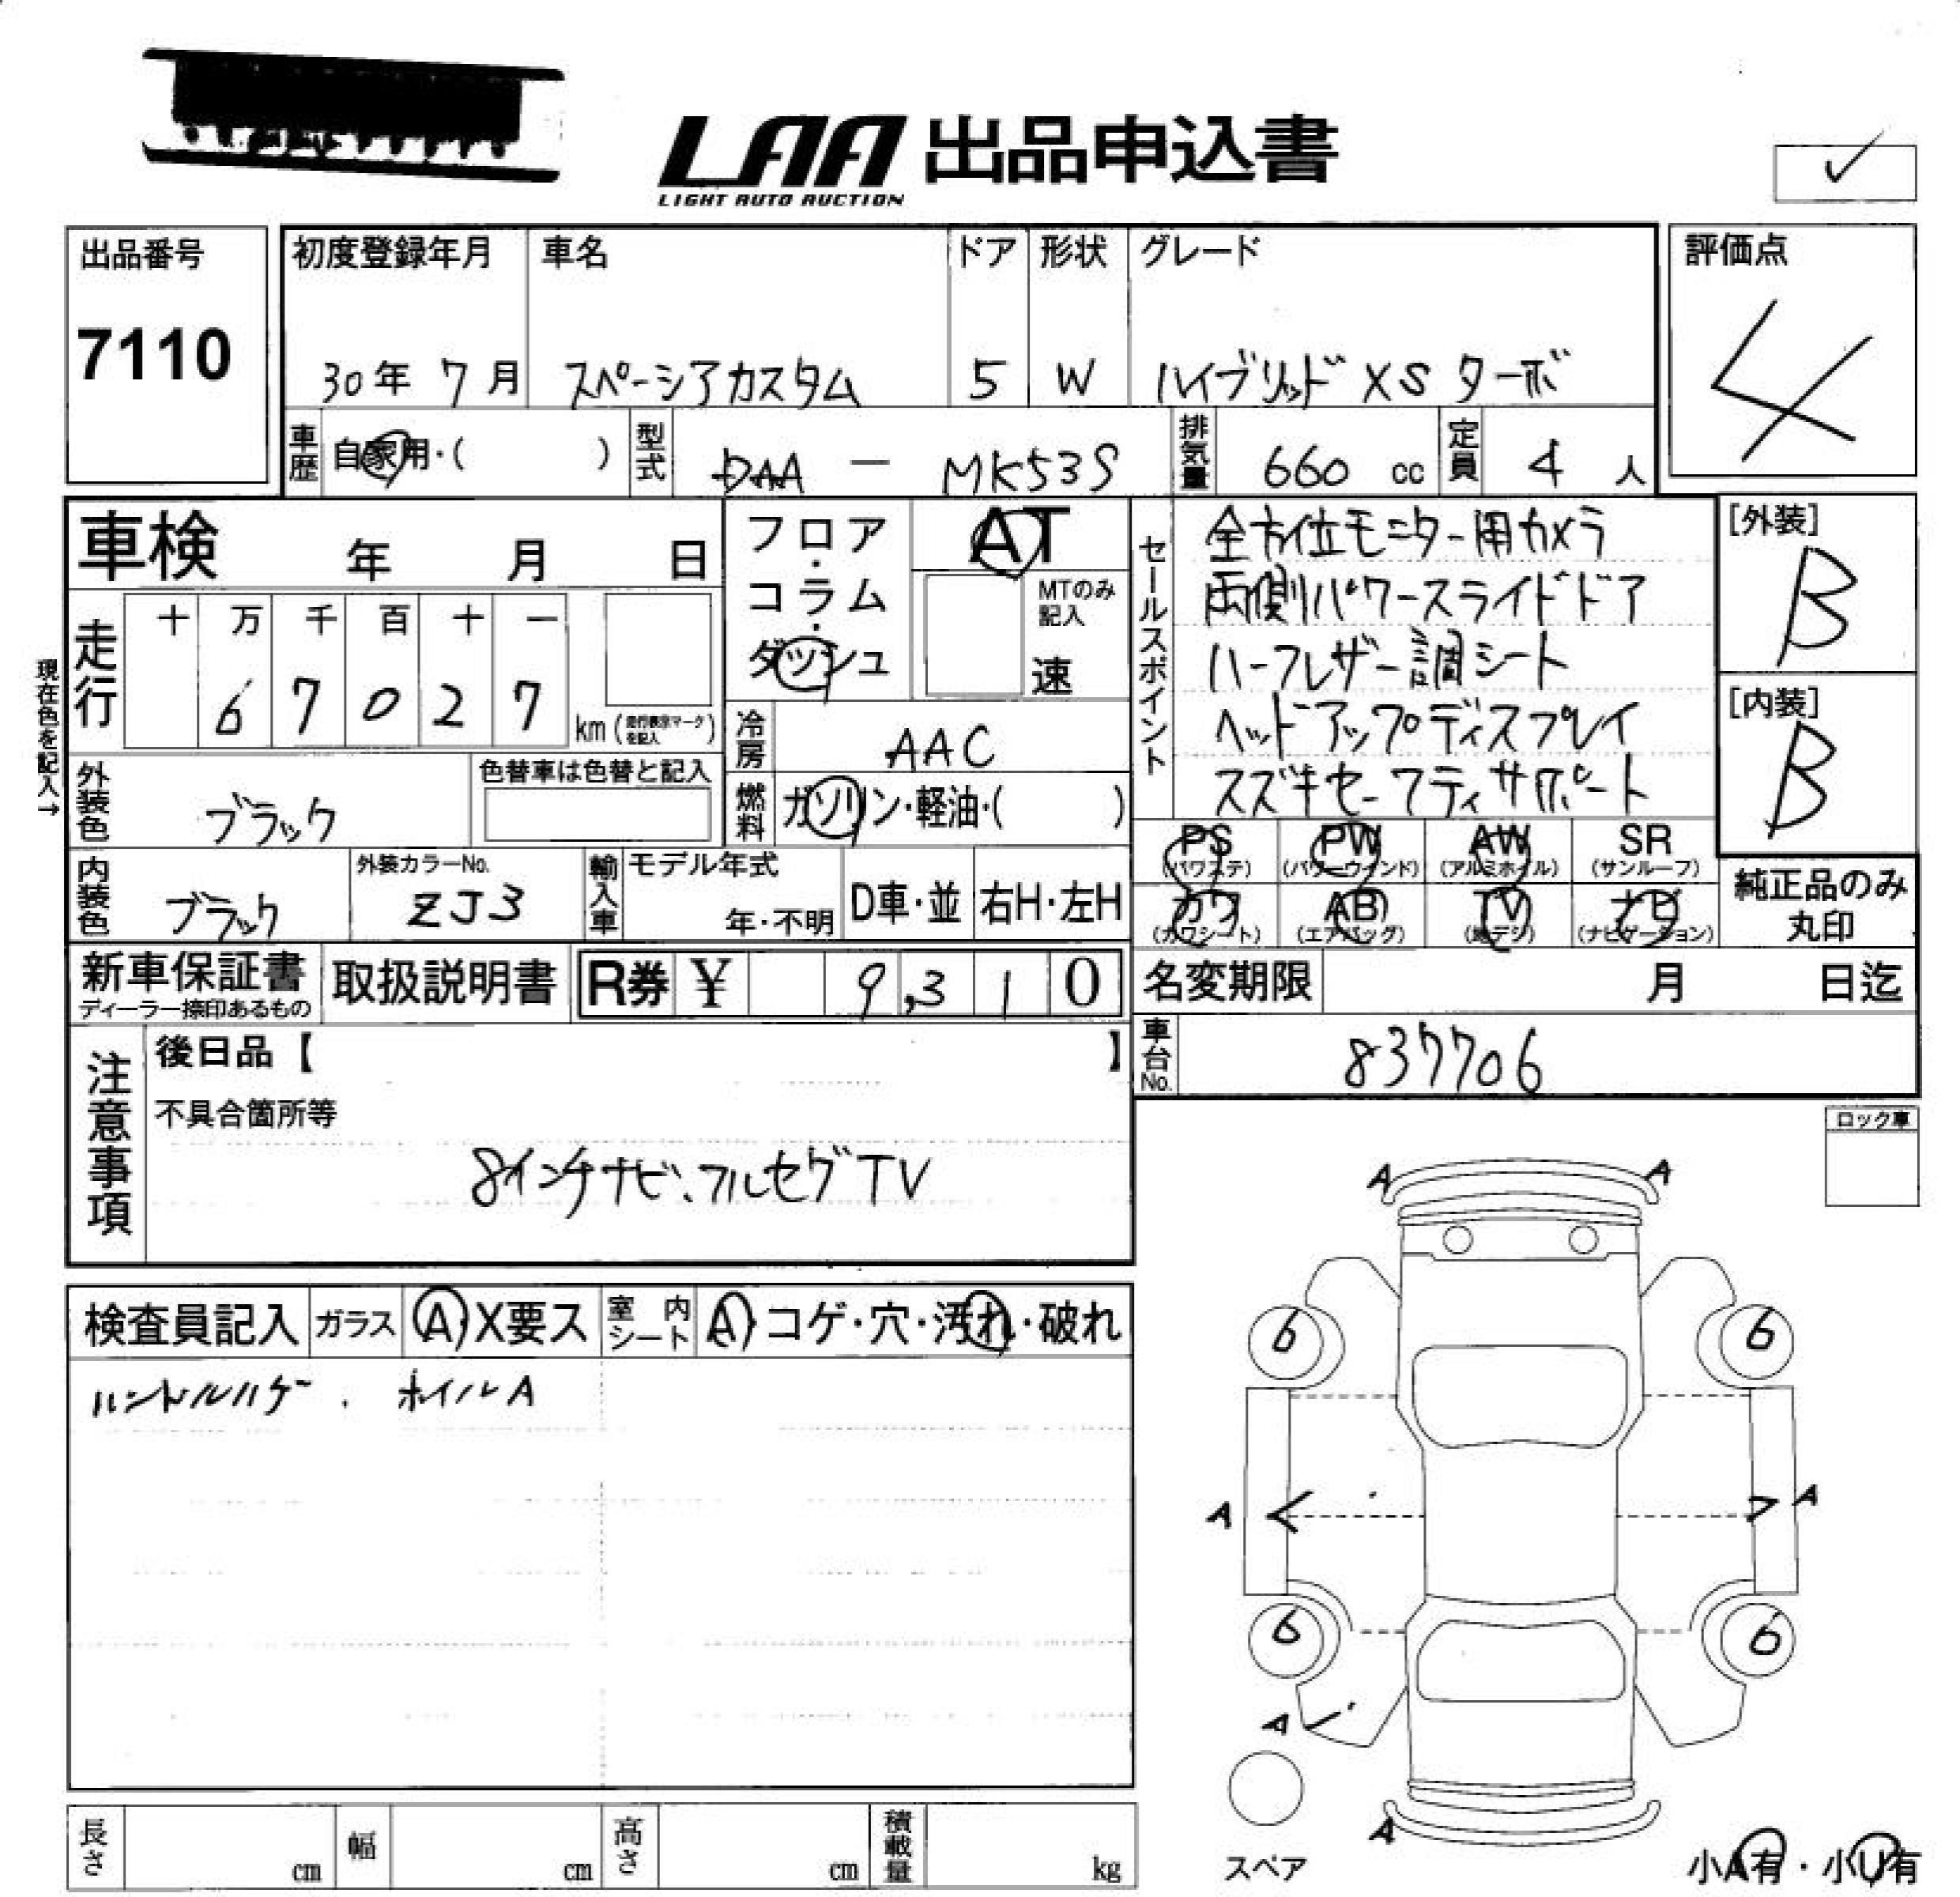 LAA 出品申込書
LIGHT AUTO AUCTION
✓
出品番号
7110
初度登録年月 車名 ドア 形状 グレード
30年 7月 スペーシアカスタム 5 W ハイブリッド XS ターボ
評価点
4
車歴 自家用・( ) 型式 DAA - MK53S 排気量 660 cc 定員 4 人
車検 年 月 日
フロア・コラム・ダッシュ
AT
MTのみ記入
速
セールスポイント
全方位モニター用カメラ
両側パワースライドドア
ハーフレザー調シート
ヘッドアップディスプレイ
スズキセーフティサポート
[外装]
B
[内装]
B
現在色を記入→
走行 十 万 千 百 十 一
6 7 0 2 7 km (走行表示マークを記入)
冷房 AAC
外装色 ブラック
色替車は色替と記入
燃料 ガソリン・軽油・( )
PS (パワステ) PW (パワーウィンド) AW (アルミホイル) SR (サンルーフ)
カワ (カワシート) AB (エアバッグ) TV (地デジ) ナビ (ナビゲーション)
純正品のみ丸印
内装色 ブラック
外装カラーNo.
ZJ3
輸入車 モデル年式
年・不明
D車・並 右H・左H
新車保証書
ディーラー捺印あるもの
取扱説明書
R券 ¥ 9,310
名変期限 月 日迄
車台No. 837706
注意事項
後日品【 】
不具合箇所等
8インチナビ、フルセグTV
ロック車
検査員記入 ガラス A・X要ス 室内シート A・コゲ・穴・汚れ・破れ
ハンドルハゲ . ホイルA
A A
6 6
A A
6 6
A
A
スペア
小A有・小U有
長さ cm 幅 cm 高さ cm 積載量 kg